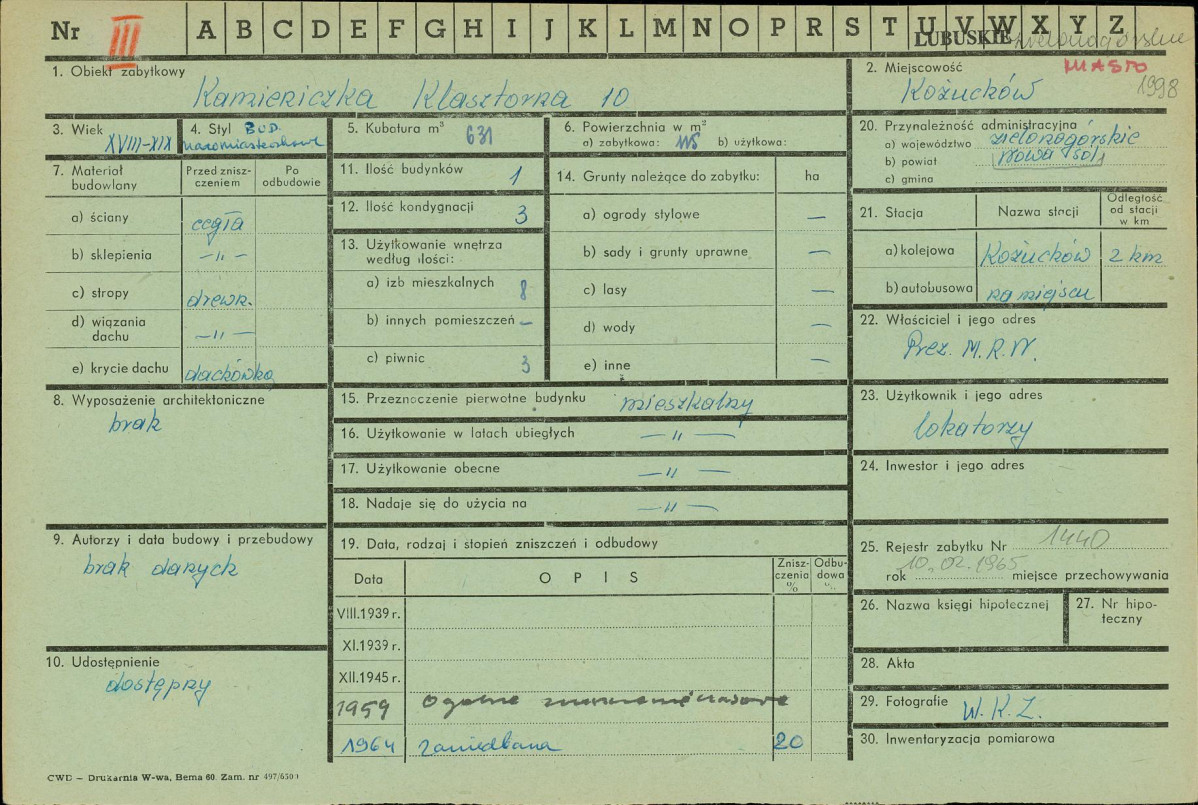 Nr III A B C D E F G H I J K L M N O P R S T U V W X Y Z
LUBUSKIE zielonogórskie
1. Obiekt zabytkowy
Kamieniczka Klasztorna 10
2. Miejscowość MIASTO
Kożuchów 1998
3. Wiek
XVIII-XIX
4. Styl BUD.
małomiasteczkowe
5. Kubatura m³ 631
6. Powierzchnia w m²
a) zabytkowa: 115 b) użytkowa:
20. Przynależność administracyjna
a) województwo zielonogórskie
b) powiat Nowa Sól
c) gmina
7. Materiał budowlany
Przed zniszczeniem
Po odbudowie
a) ściany cegła
b) sklepienia —„—
c) stropy drewn.
d) wiązania dachu —„—
e) krycie dachu dachówka
11. Ilość budynków 1
12. Ilość kondygnacji 3
13. Użytkowanie wnętrza
według ilości:
a) izb mieszkalnych 8
b) innych pomieszczeń –
c) piwnic 3
14. Grunty należące do zabytku: ha
a) ogrody stylowe —
b) sady i grunty uprawne —
c) lasy —
d) wody —
e) inne —
21. Stacja
Nazwa stacji
Odległość od stacji w km
a) kolejowa Kożuchów 2 km
b) autobusowa na miejscu
22. Właściciel i jego adres
Prez. M.R.N.
8. Wyposażenie architektoniczne
brak
15. Przeznoczenie pierwotne budynku mieszkalny
16. Użytkowanie w latach ubiegłych —„—
17. Użytkowanie obecne —„—
18. Nadaje się do użycia na —„—
23. Użytkownik i jego adres
lokatorzy
24. Inwestor i jego adres
9. Autorzy i data budowy i przebudowy
brak danych
19. Data, rodzaj i stopień zniszczeń i odbudowy
Data
OPIS
Zniszczenia %
Odbudowa %
VIII.1939 r.
XI.1939 r.
XII.1945 r.
1959 Ogólne
1964 zaniedbana 20
25. Rejestr zabytku Nr 1440
rok 10.02.1965 miejsce przechowywania
26. Nazwa księgi hipotecznej
27. Nr hipoteczny
10. Udostępnienie
dostępny
28. Akta
29. Fotografie W.K.Z.
30. Inwentaryzacja pomiarowa
CWD – Drukarnia W-wa, Bema 60. Zam. nr 497/650